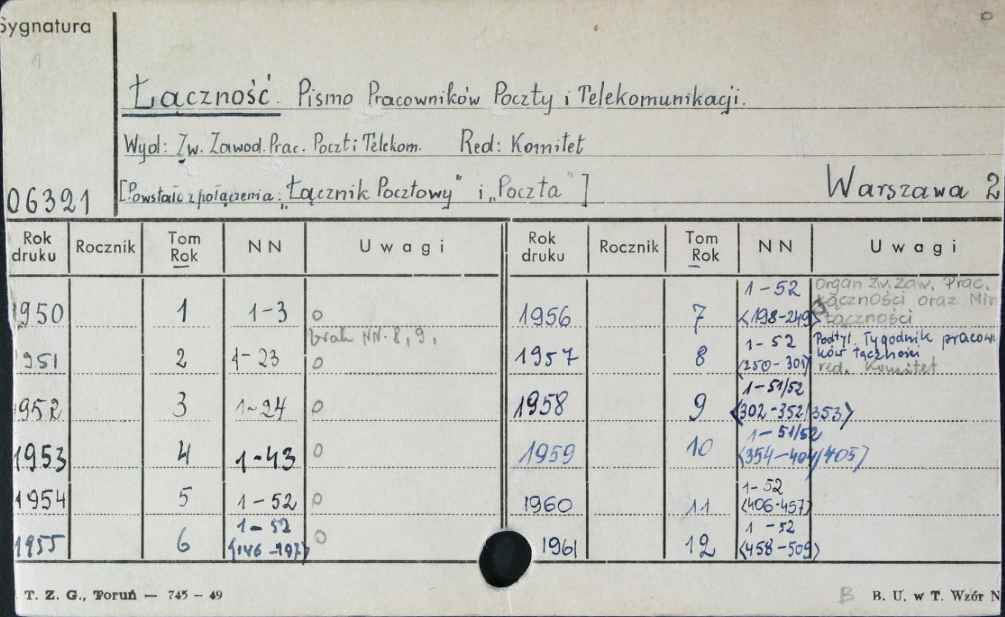 Sygnatura
Łączność. Pismo Pracowników Poczty i Telekomunikacji.
Wyd: Zw. Zawod. Prac. Poczt i Telekom. Red: Komitet
06321 [Powstało z połączenia: „Łącznik Pocztowy" i „Poczta"] Warszawa 2
Rok druku Rocznik Tom Rok NN Uwagi
1950 1 1-3 o
brak NN. 8, 9.
1951 2 1-23 o
1952 3 1-24 o
1953 4 1-43
1954 5 1-52 o
1955 6 1-52 <146-197> o
Rok druku Rocznik Tom Rok NN Uwagi
1956 7 1-52 <198-249> Organ Zw. Zaw. Prac. Łączności oraz Min Łączności
1957 8 1-52 <250-301> Podtyt. Tygodnik pracowników łączności
red. Komitet
1958 9 1-51/52 <302-352/353>
1959 10 1-51/52 <354-404/405>
1960 11 1-52 <406-457>
1961 12 1-52 <458-509>
T. Z. G., Toruń — 745 — 49
B B. U. w T. Wzór N